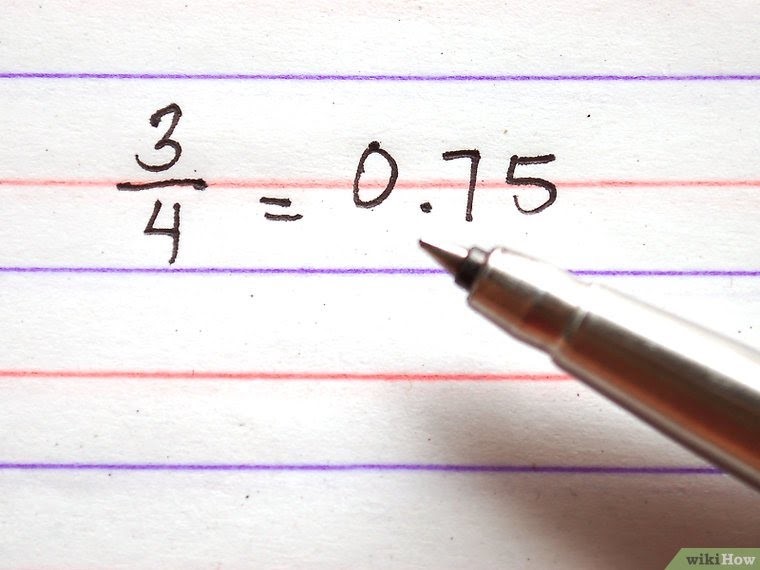 3/4 = 0.75
wikiHow